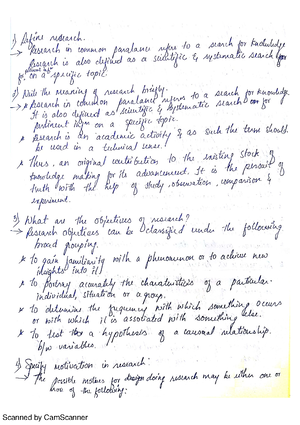 1) Define research.
→ Research in common paralance refers to a search for knowledge
Research is also defined as a scientific & systematic search for
on a specific topic.
2) Write the meaning of research briefly.
→ * Research in common paralance refers to a search for knowledge.
It is also defined as scientific & systematic search for
pertinent infor on a specific topic.
* Research is an academic activity & as such the term should
be used in a technical sense.
* Thus, an original contribution to the existing stock of
knowledge making for its advancement. It is the pursuit of
truth with the help of study, observation, comparison &
experiment.
3) What are the objectives of research?
→ Research objectives can be classified under the following
broad grouping.
* To gain familiarity with a phenomenon or to achieve new
insights into it
* To portray accurately the charateristics of a particular
individual, situation or a group.
* To determine the frequency with which something occurs
or with which it is associated with something else.
* To test a hypothesis of a causal relationship
b/w variables.
4) Specify motivation in research:
→ The possible motives for doing research may be either one or
two of the following:
Scanned by CamScanner